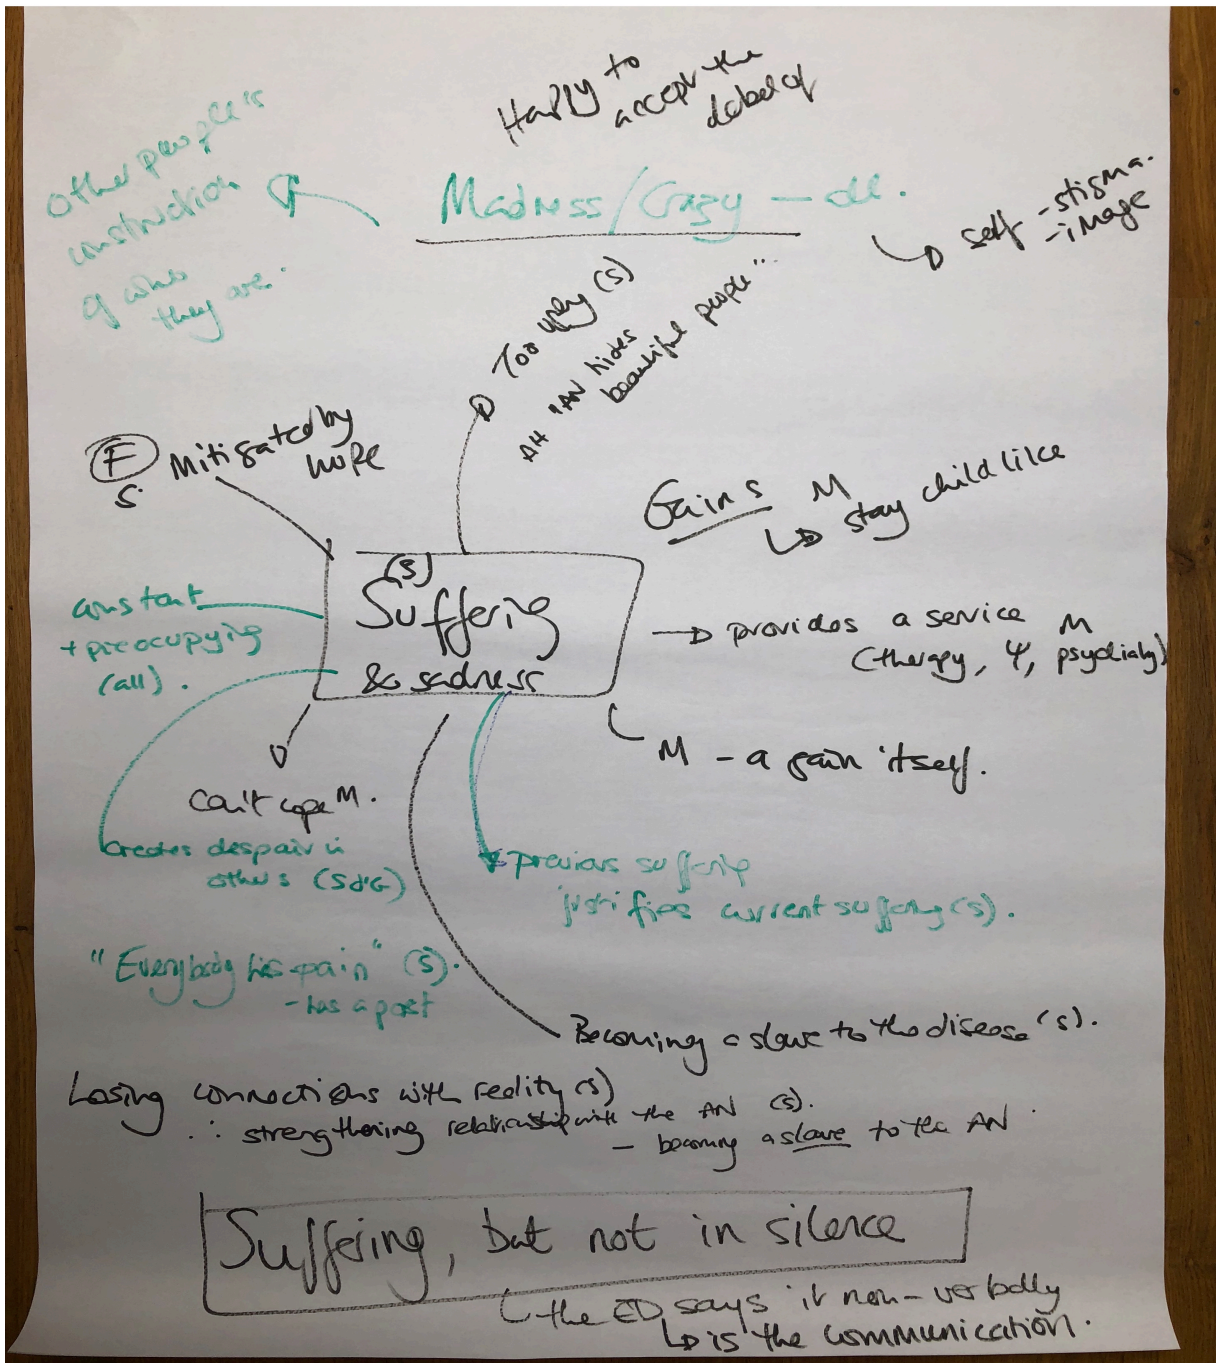 Happy to
accept the
label of
Other people's
construction
of who
they are.
Madness/Crazy — all.
self - stigma.
- image
Too ugly (S)
AH "AN hides
beautiful people"
(F) Mitigated by
S. hope
Gains M
stay child like
(S)
Suffering
& sadness
constant
+ preocupying
(all).
provides a service M
(therapy, Ψ, psychiatry)
M - a gain itself.
Can't cope M.
Creates despair in
others (S&G)
previous suffering
justifies current suffering (s).
"Everybody has pain" (S).
- has a past
Becoming a slave to the disease (s).
Losing connections with reality (s)
∴ strengthening relationship with the AN (s).
- becoming a slave to the AN.
Suffering, but not in silence
the ED says it non-verbally
is the communication.